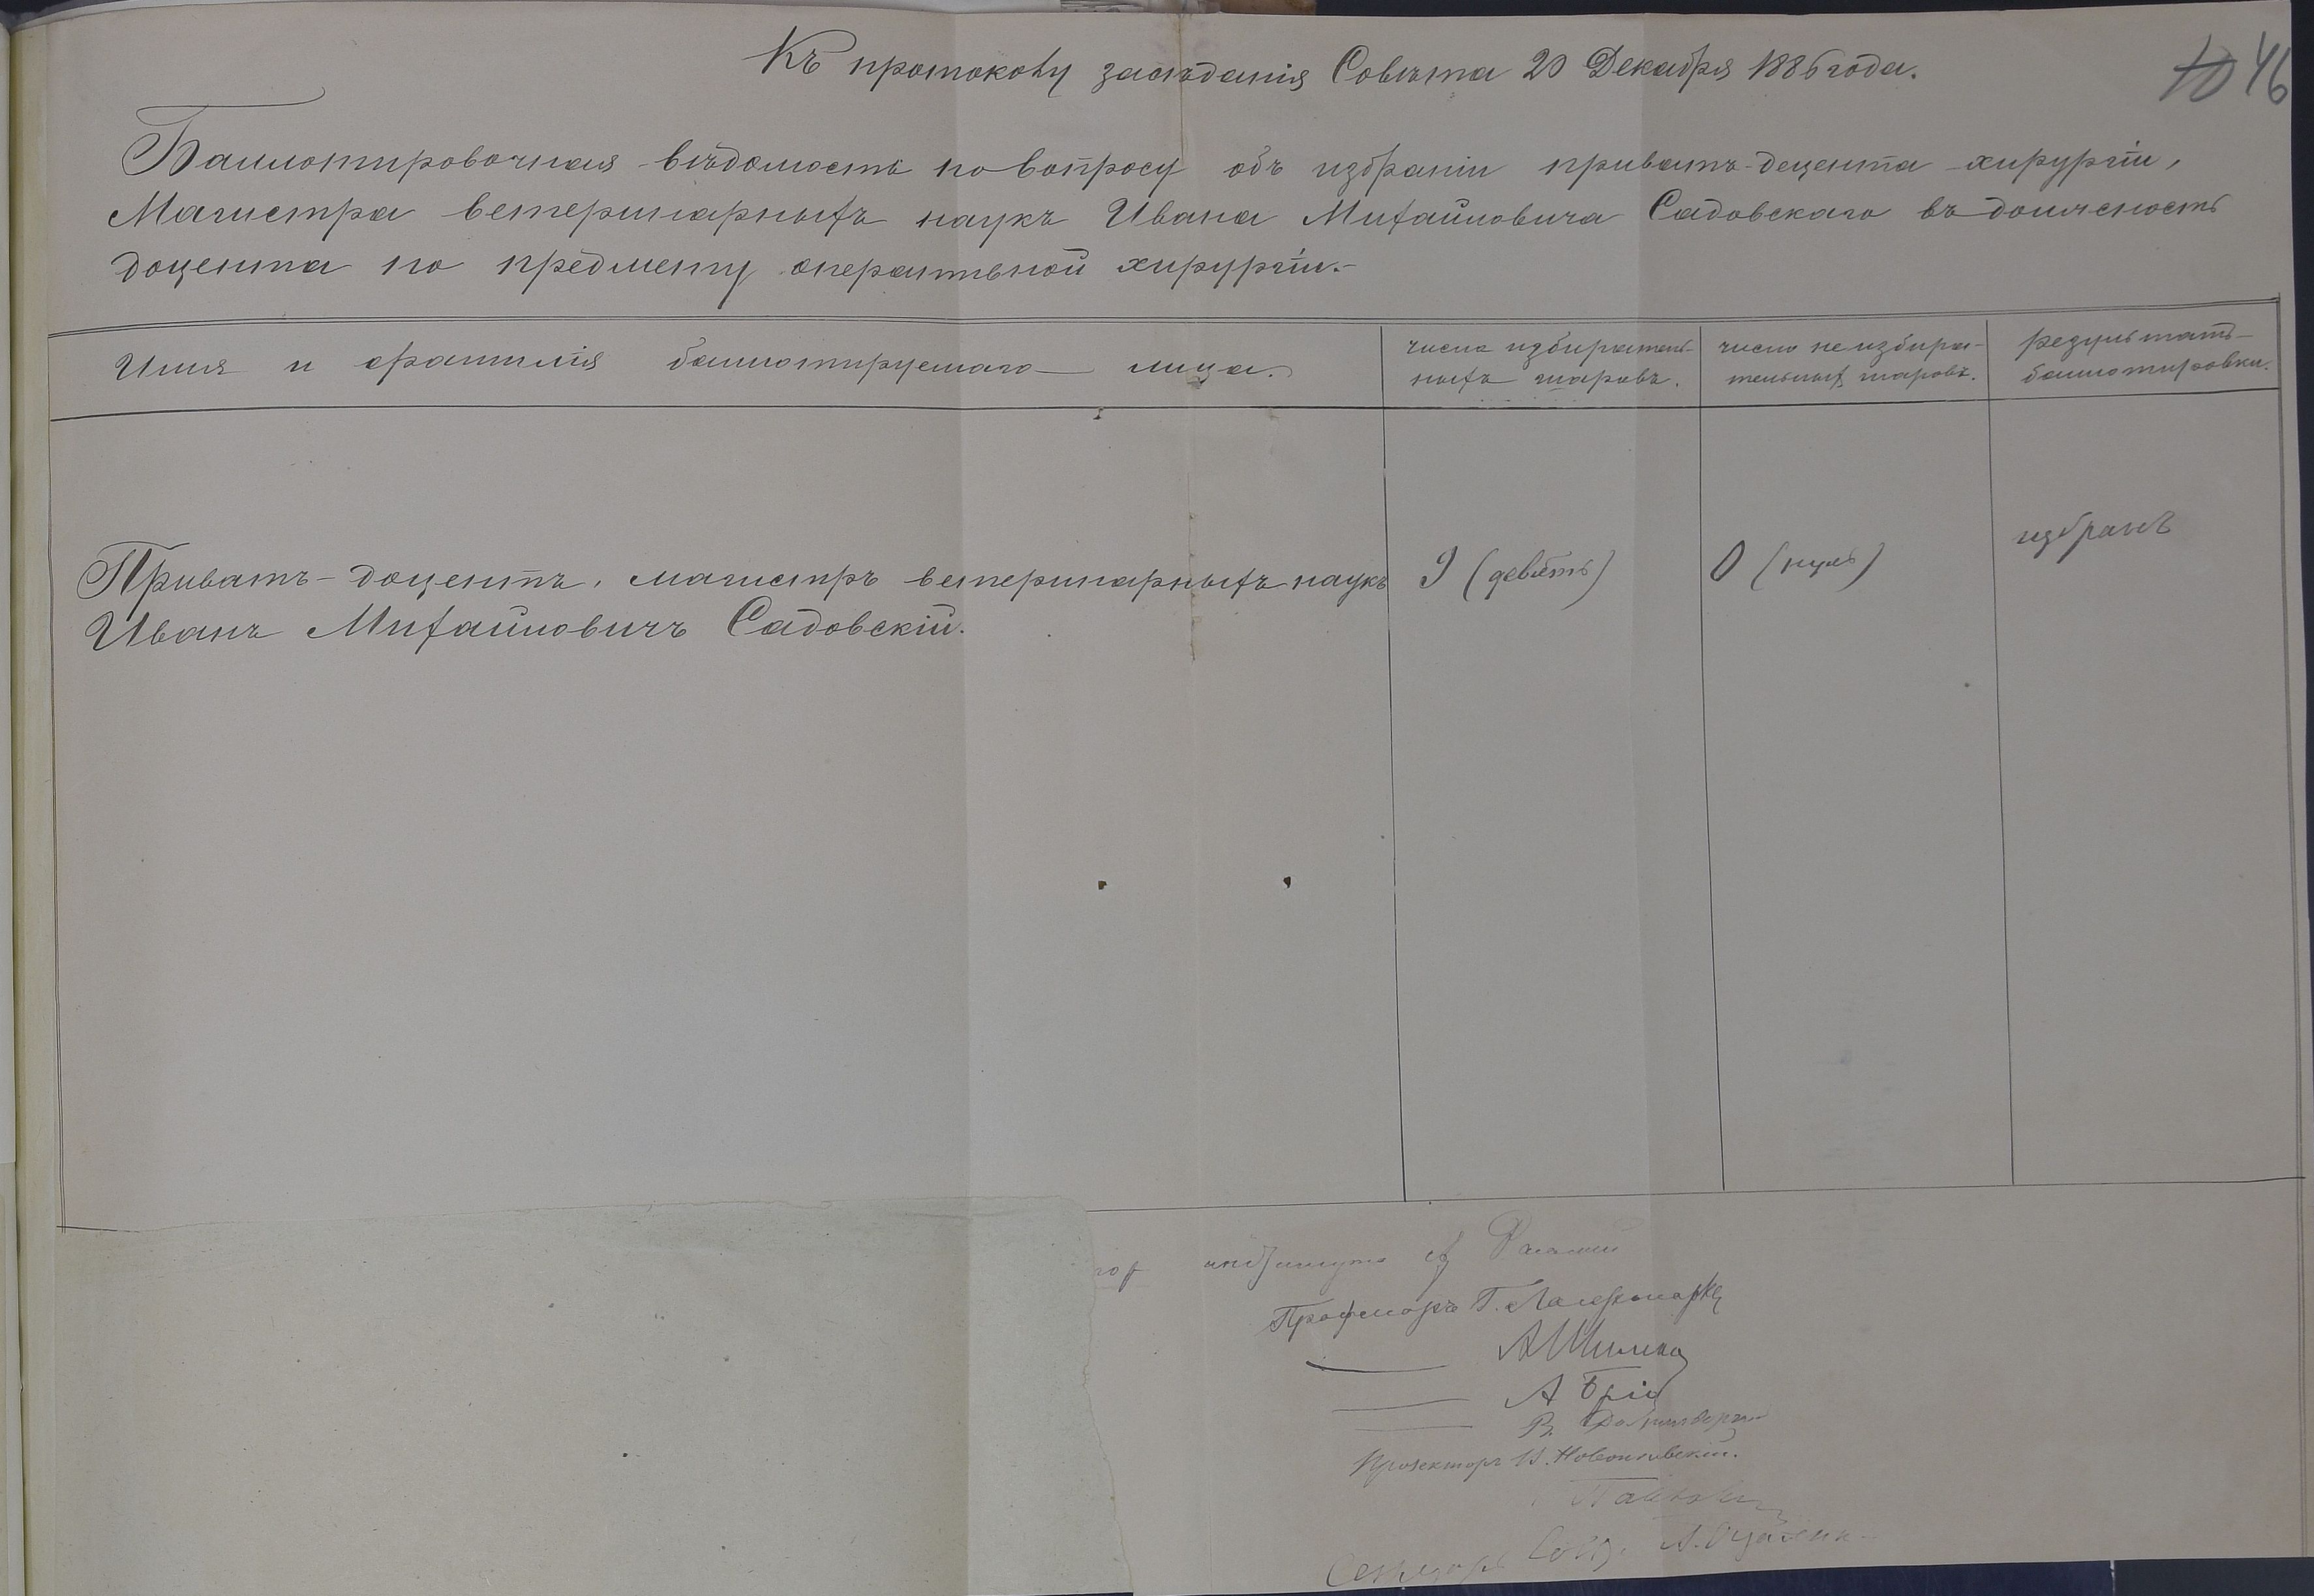 Къ протоколу засѣданія Совѣта 20 Декабря 1886 года.
10 46
Баллотировочная вѣдомость по вопросу объ избраніи приватъ-доцента хирургіи,
Магистра ветеринарныхъ наукъ Ивана Михайловича Садовскаго въ должность
доцента по предмету оперативной хирургіи.-
Имя и фамилія баллотируемаго лица.
число избиратель-
ныхъ шаровъ.
число не избира-
тельныхъ шаровъ.
результатъ
баллотировки.
Приватъ-доцентъ, магистръ ветеринарныхъ наукъ
Иванъ Михайловичъ Садовскій.
9 (девять)
0 (нуль)
избранъ
Института
Профессоръ Г.
А
А Брі
Прозекторъ
Секретарь